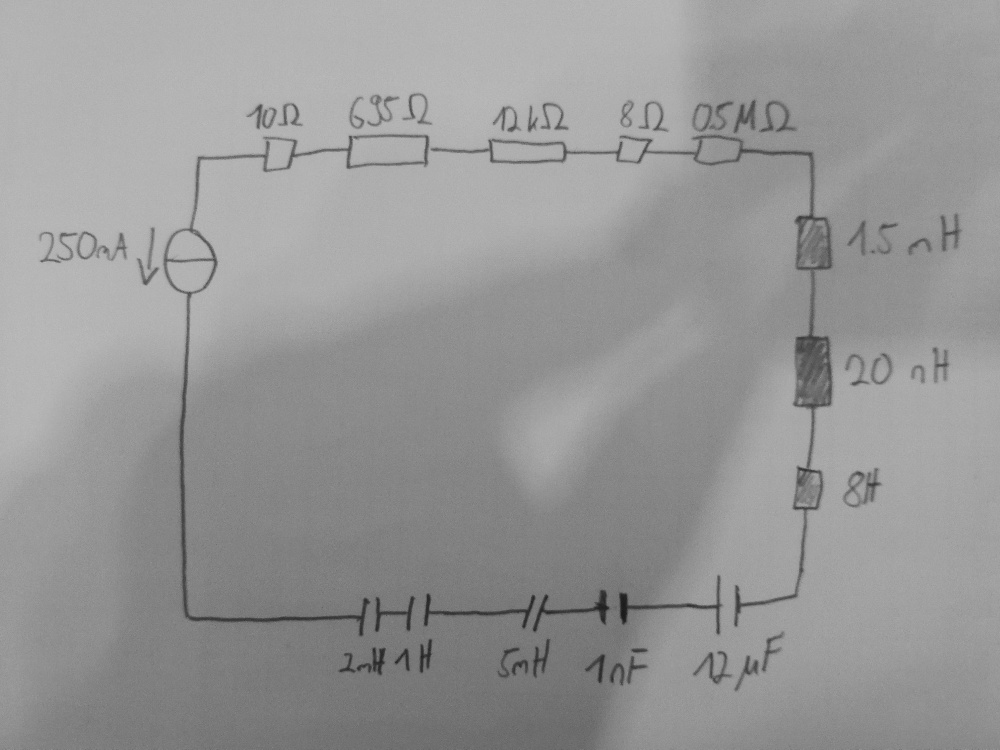 10Ω
695Ω
12kΩ
8Ω
05MΩ
250mA
1.5 nH
20 nH
8H
2mH
1H
5mH
1nF
12μF